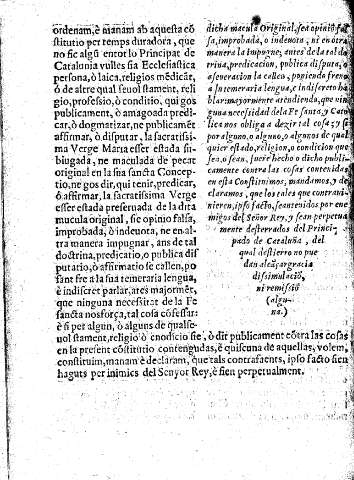 ordenam, è manam ab aquesta cō
stitutio per temps duradora, que
no sie algu entorlo Principat de
Catalunya vulles sia Ecclesiastica
persona, ò laica, religios mèdicāt,
ò de altre qual seuol stament, reli
gio, professio, ò conditio, qui gos
publicament, ò amagoada predi-
car, ò dogmatizar, ne publicamēt
affirmar, ò disputar, la sacratissi-
ma Verge Maria esser estada su-
biugada, ne maculada de pecat
original en la sua sancta Concep-
tio, ne gos dir, qui tenir, predicar,
ò affirmar, la sacratissima Verge
esser estada preseruada de la dita
mucula original, sie opinio falsa,
improbada, ò indeuota, ne en al-
tra manera impugnar, ans de tal
doctrina, predicatio, o publica dis
putatio, ò affirmatio se callen, po
sant fre a la sua temeraria lengua,
è indiscret parlar, ates majormēt,
que ninguna necessitat de la Fe
sancta nos força, tal cosa cōfessar:
è si per algun, ò alguns de qualse-
uol stament, religio ò cōdicio sie, ò dit publicament cōtra las cosas
en la present cōstitutio contengudas, è quiscuna de aquellas, volem,
constituim, manam è declaram, que tals contrafaents, ipso facto sien
haguts per inimics del Senyor Rey, è sien perpetualment.
dicha macula Original, sea opinió fal
sa, improbada, o indeuota, ni en otra
manera la impugne, antes de la tal do
trina, predicacion, publica disputa, o
aseueracion la callen, poniendo freno
a su temeraria lengua, y indiscreto ha
blar: mayormente atendienda, que nin
guna necessidad de la Fe santa, y Catò
lica nos obliga a dezir tal cosa; y si
por alguno, o alguno, o algunos de qual
quier estado, religion, o condicion que
sea, o sean, fuere hecho o dicho publi-
camente contra las cosas contenidas
en esta Constitucion, mandamos, y de
claramos, que los tales que contraui-
nieren, ipso facto, sean tenidos por ene
migos del Señor Rey, y sean perpetua
mente desterrados del Princi-
pado de Cataluña, del
qual destierro no pue
dan alcāçar gracia
dissimulaciō,
ni remissiō
(algu-
na.)